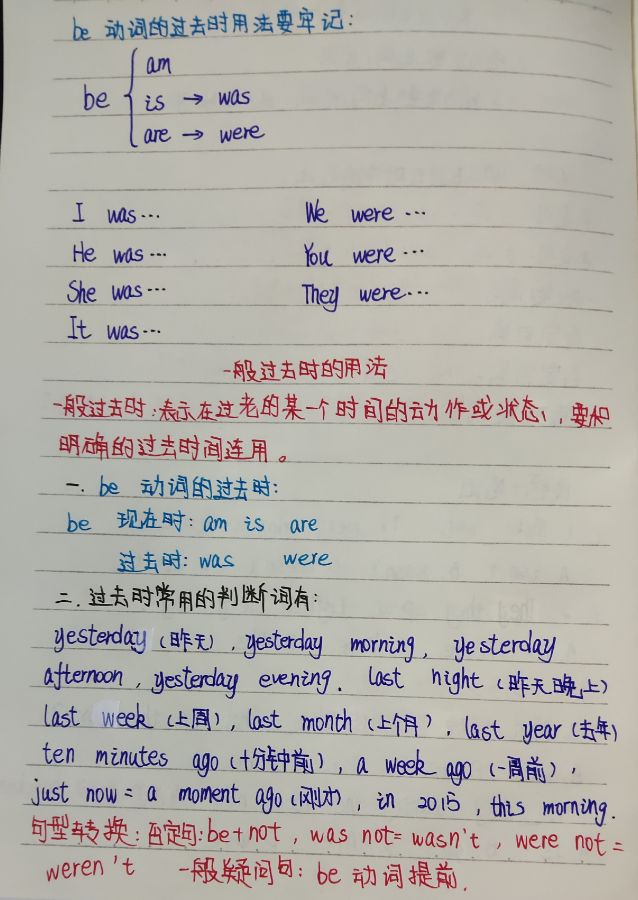 be 动词的过去时用法要牢记:
am
be { is → was
are → were
I was… We were …
He was… You were …
She was… They were…
It was…
一般过去时的用法
一般过去时:表示在过去的某一个时间的动作或状态,要和
明确的过去时间连用。
一. be 动词的过去时:
be 现在时: am is are
过去时: was were
二. 过去时常用的判断词有:
yesterday (昨天), yesterday morning, yesterday
afternoon, yesterday evening. last night (昨天晚上)
last week (上周), last month (上个月), last year (去年)
ten minutes ago (十分钟前), a week ago (一周前),
just now = a moment ago (刚才), in 2015, this morning.
句型转换: 否定句: be + not, was not = wasn't, were not =
weren't 一般疑问句: be 动词提前.